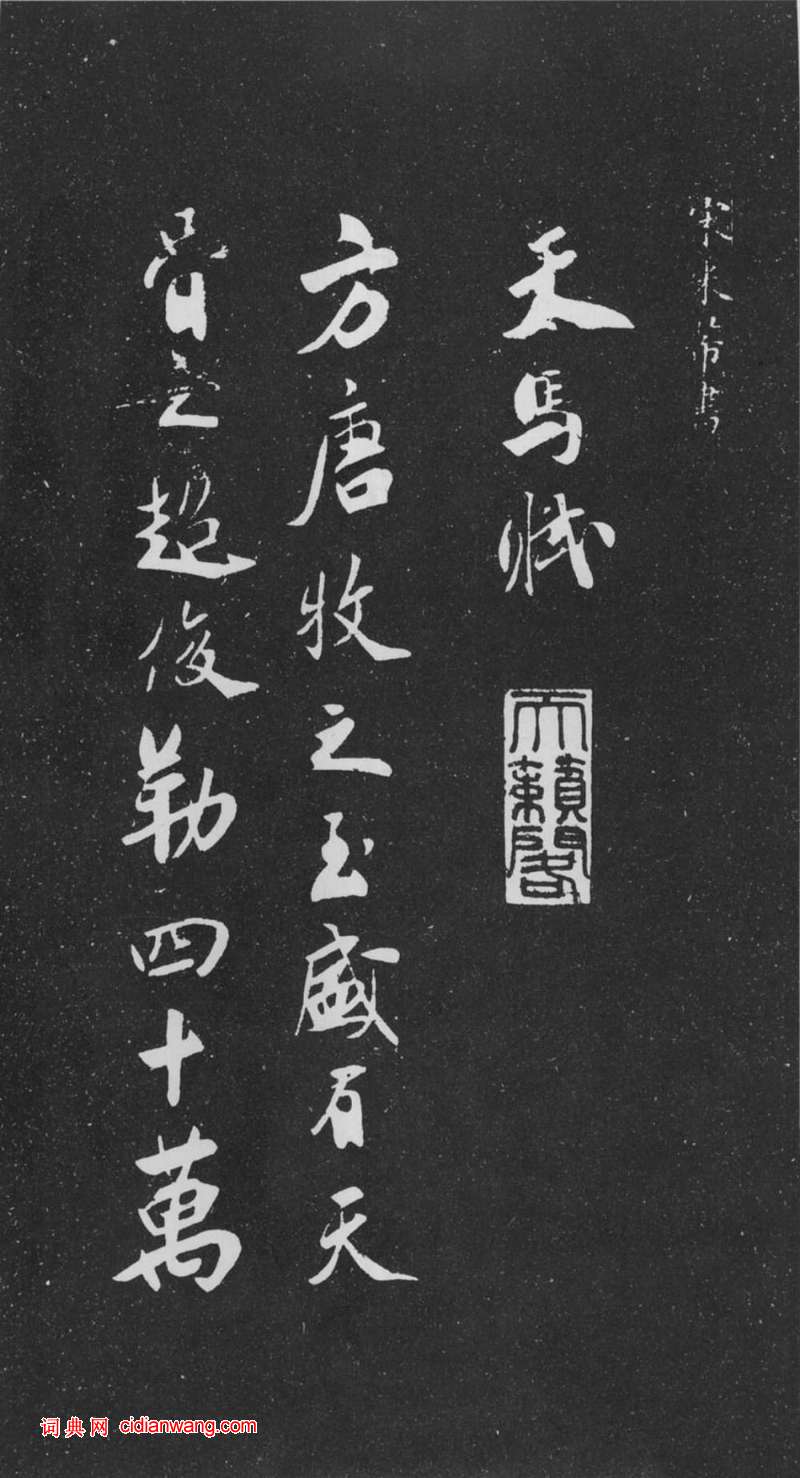 宋米芾書
天馬賦
天籟閣
方唐牧之至盛有天
骨之超俊勒四十萬
词典网 cidianwang.com